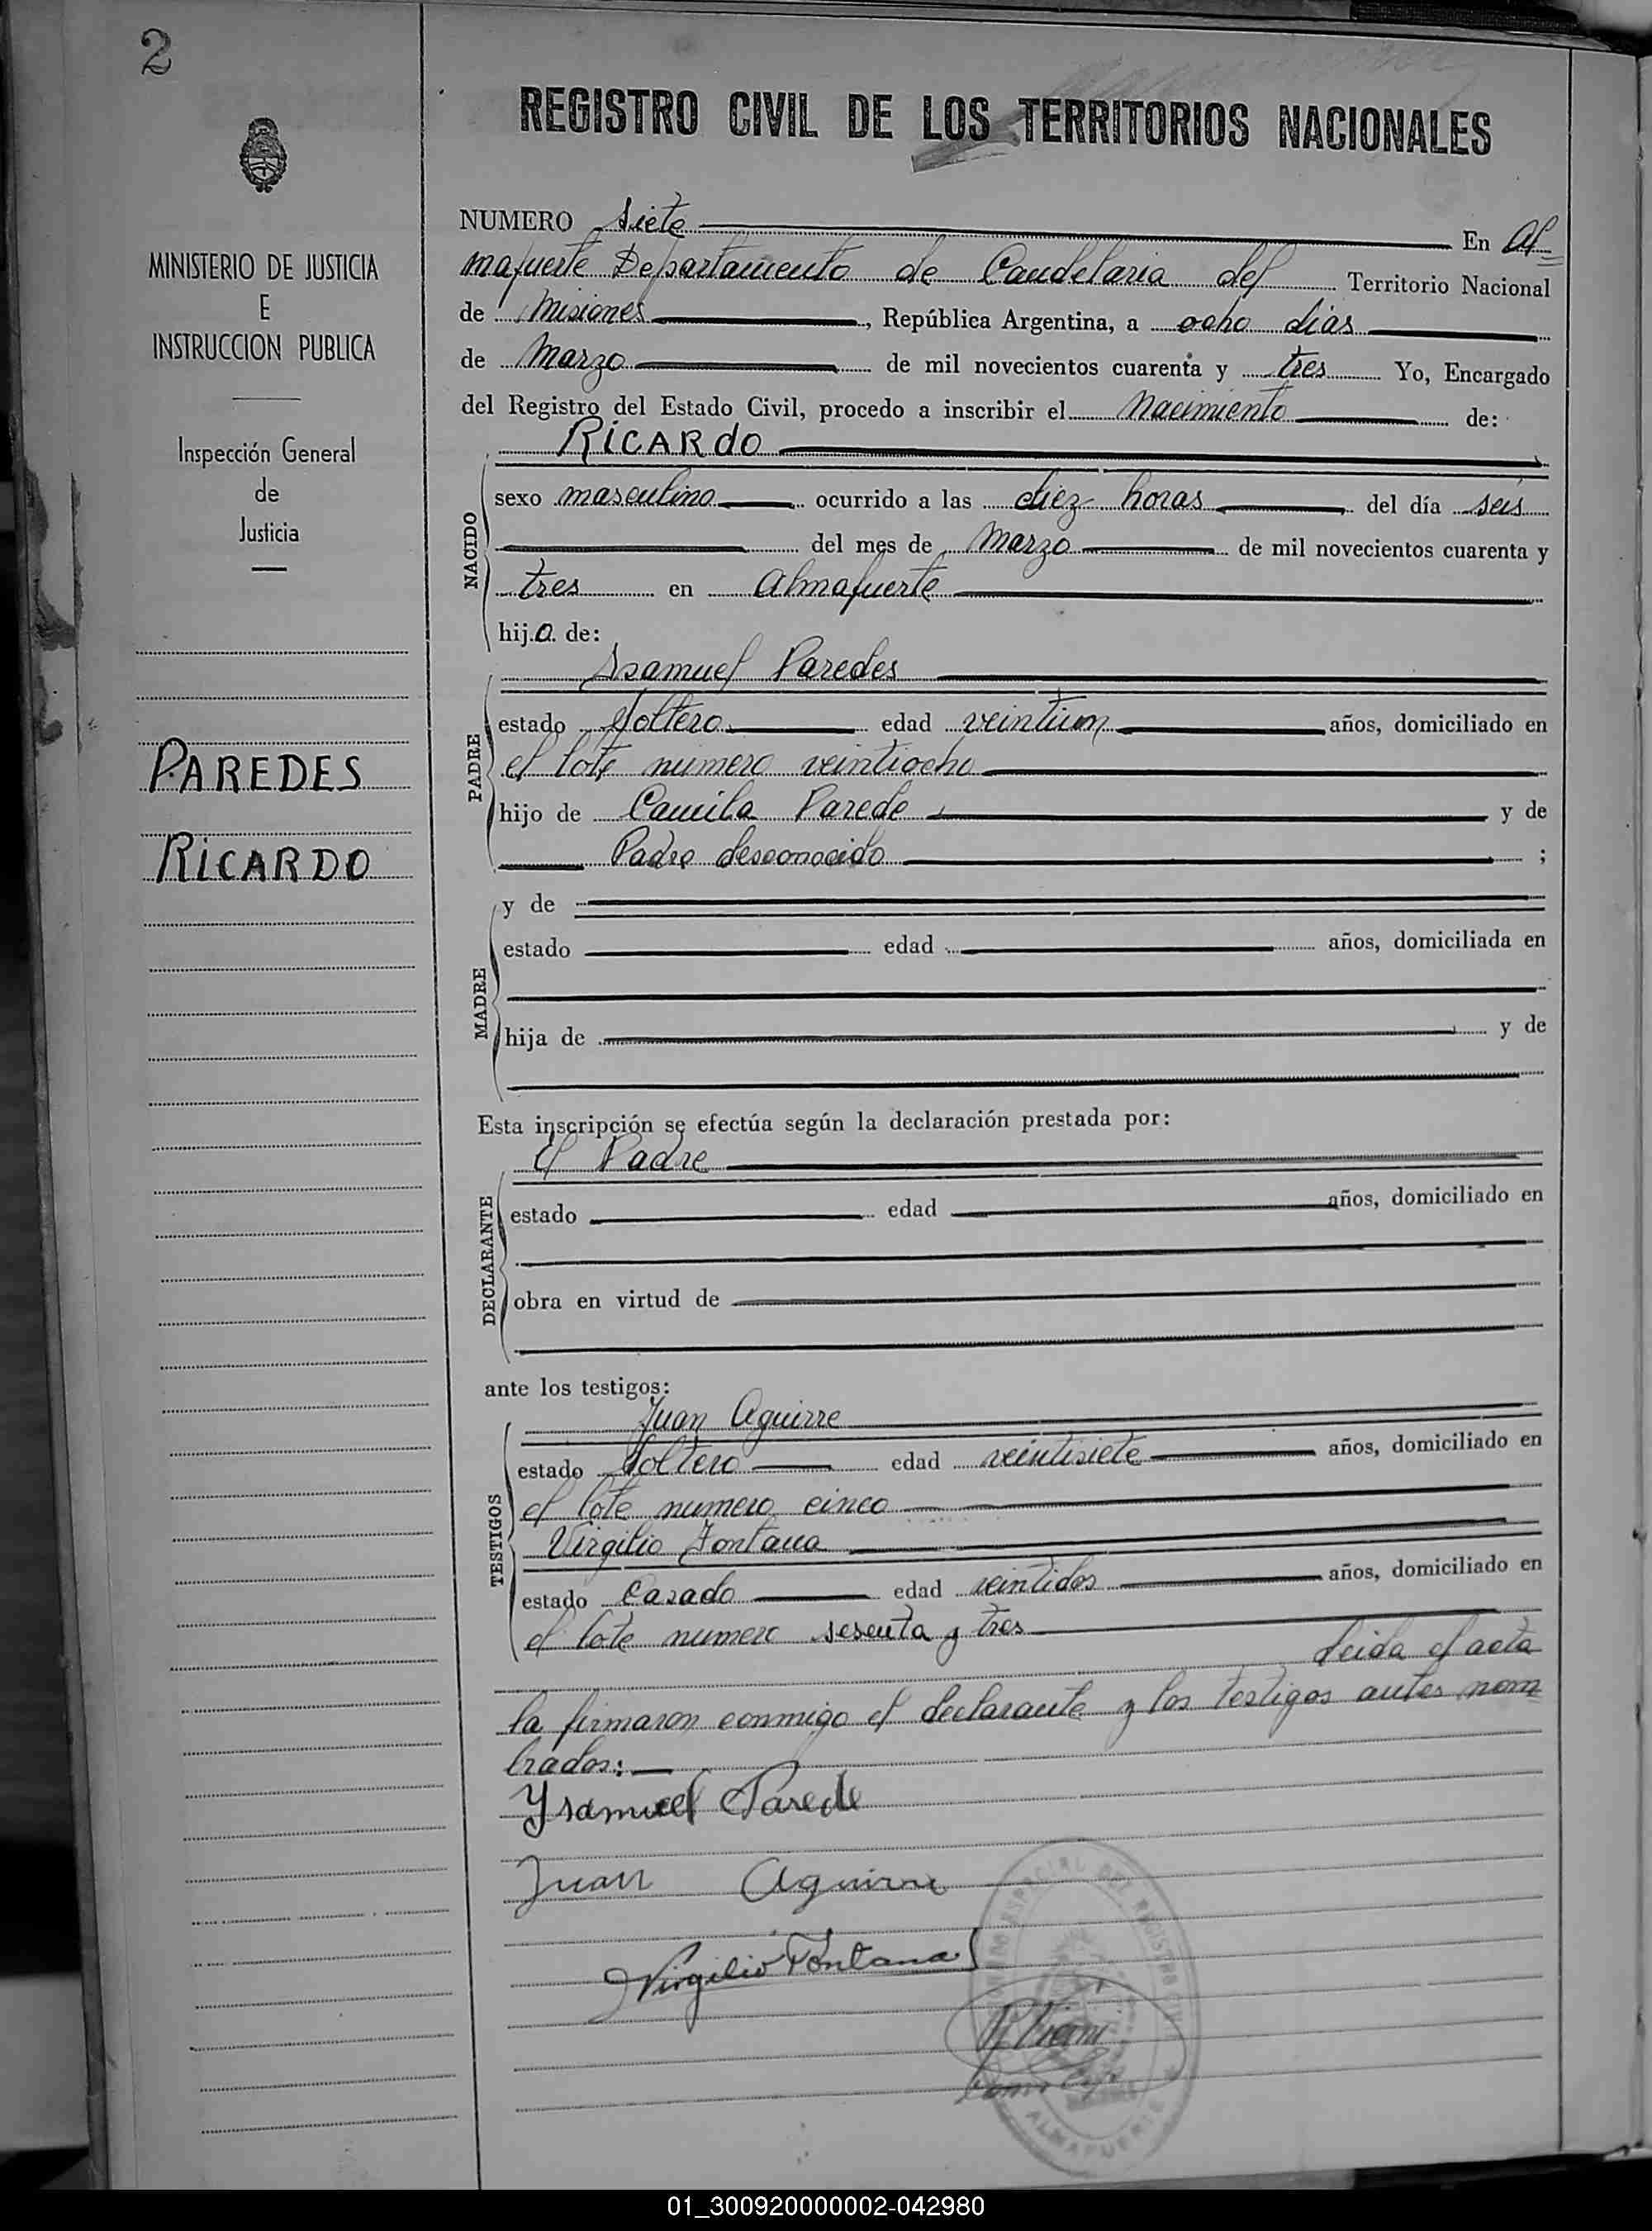 2
REGISTRO CIVIL DE LOS TERRITORIOS NACIONALES
MINISTERIO DE JUSTICIA
E
INSTRUCCION PUBLICA
Inspección General
de
Justicia
PAREDES
RICARDO
NUMERO Siete En Al=
mafuerte Departamento de Candelaria del Territorio Nacional
de Misiones, República Argentina, a ocho dias
de Marzo de mil novecientos cuarenta y tres Yo, Encargado
del Registro del Estado Civil, procedo a inscribir el Nacimiento de:
RICARdO
NACIDO
sexo masculino ocurrido a las diez horas del día seis
del mes de Marzo de mil novecientos cuarenta y
tres en Almafuerte
hij.o. de:
PADRE
Isamuel Paredes
estado Soltero edad veintiun años, domiciliado en
el lote numero veintiocho
hijo de Camila Parede y de
Padre desconocido ;
MADRE
y de
estado edad años, domiciliada en
hija de y de
Esta inscripción se efectúa según la declaración prestada por:
DECLARANTE
El Padre
estado edad años, domiciliado en
obra en virtud de
ante los testigos:
TESTIGOS
Juan Aguirre
estado Soltero edad veintisiete años, domiciliado en
el lote numero cinco
Virgilio Fontana
estado Casado edad veintidos años, domiciliado en
el lote numero sesenta y tres
Leida el acta
la firmaron conmigo el declarante y los testigos antes nom
brados:
Ysamuel Parede
Juan Aguirre
Virgilio Fontana
DEL REGISTRO CIVIL
ALMAFUERTE
01_300920000002-042980